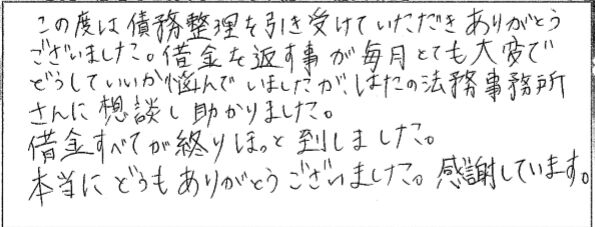 この度は債務整理を引き受けていただきありがとう
ございました。借金を返す事が毎月とても大変で
どうしていいか悩んでいましたが、はたの法務事務所
さんに想談し助かりました。
借金すべてが終りほっと到しました。
本当にどうもありがとうございました。感謝しています。